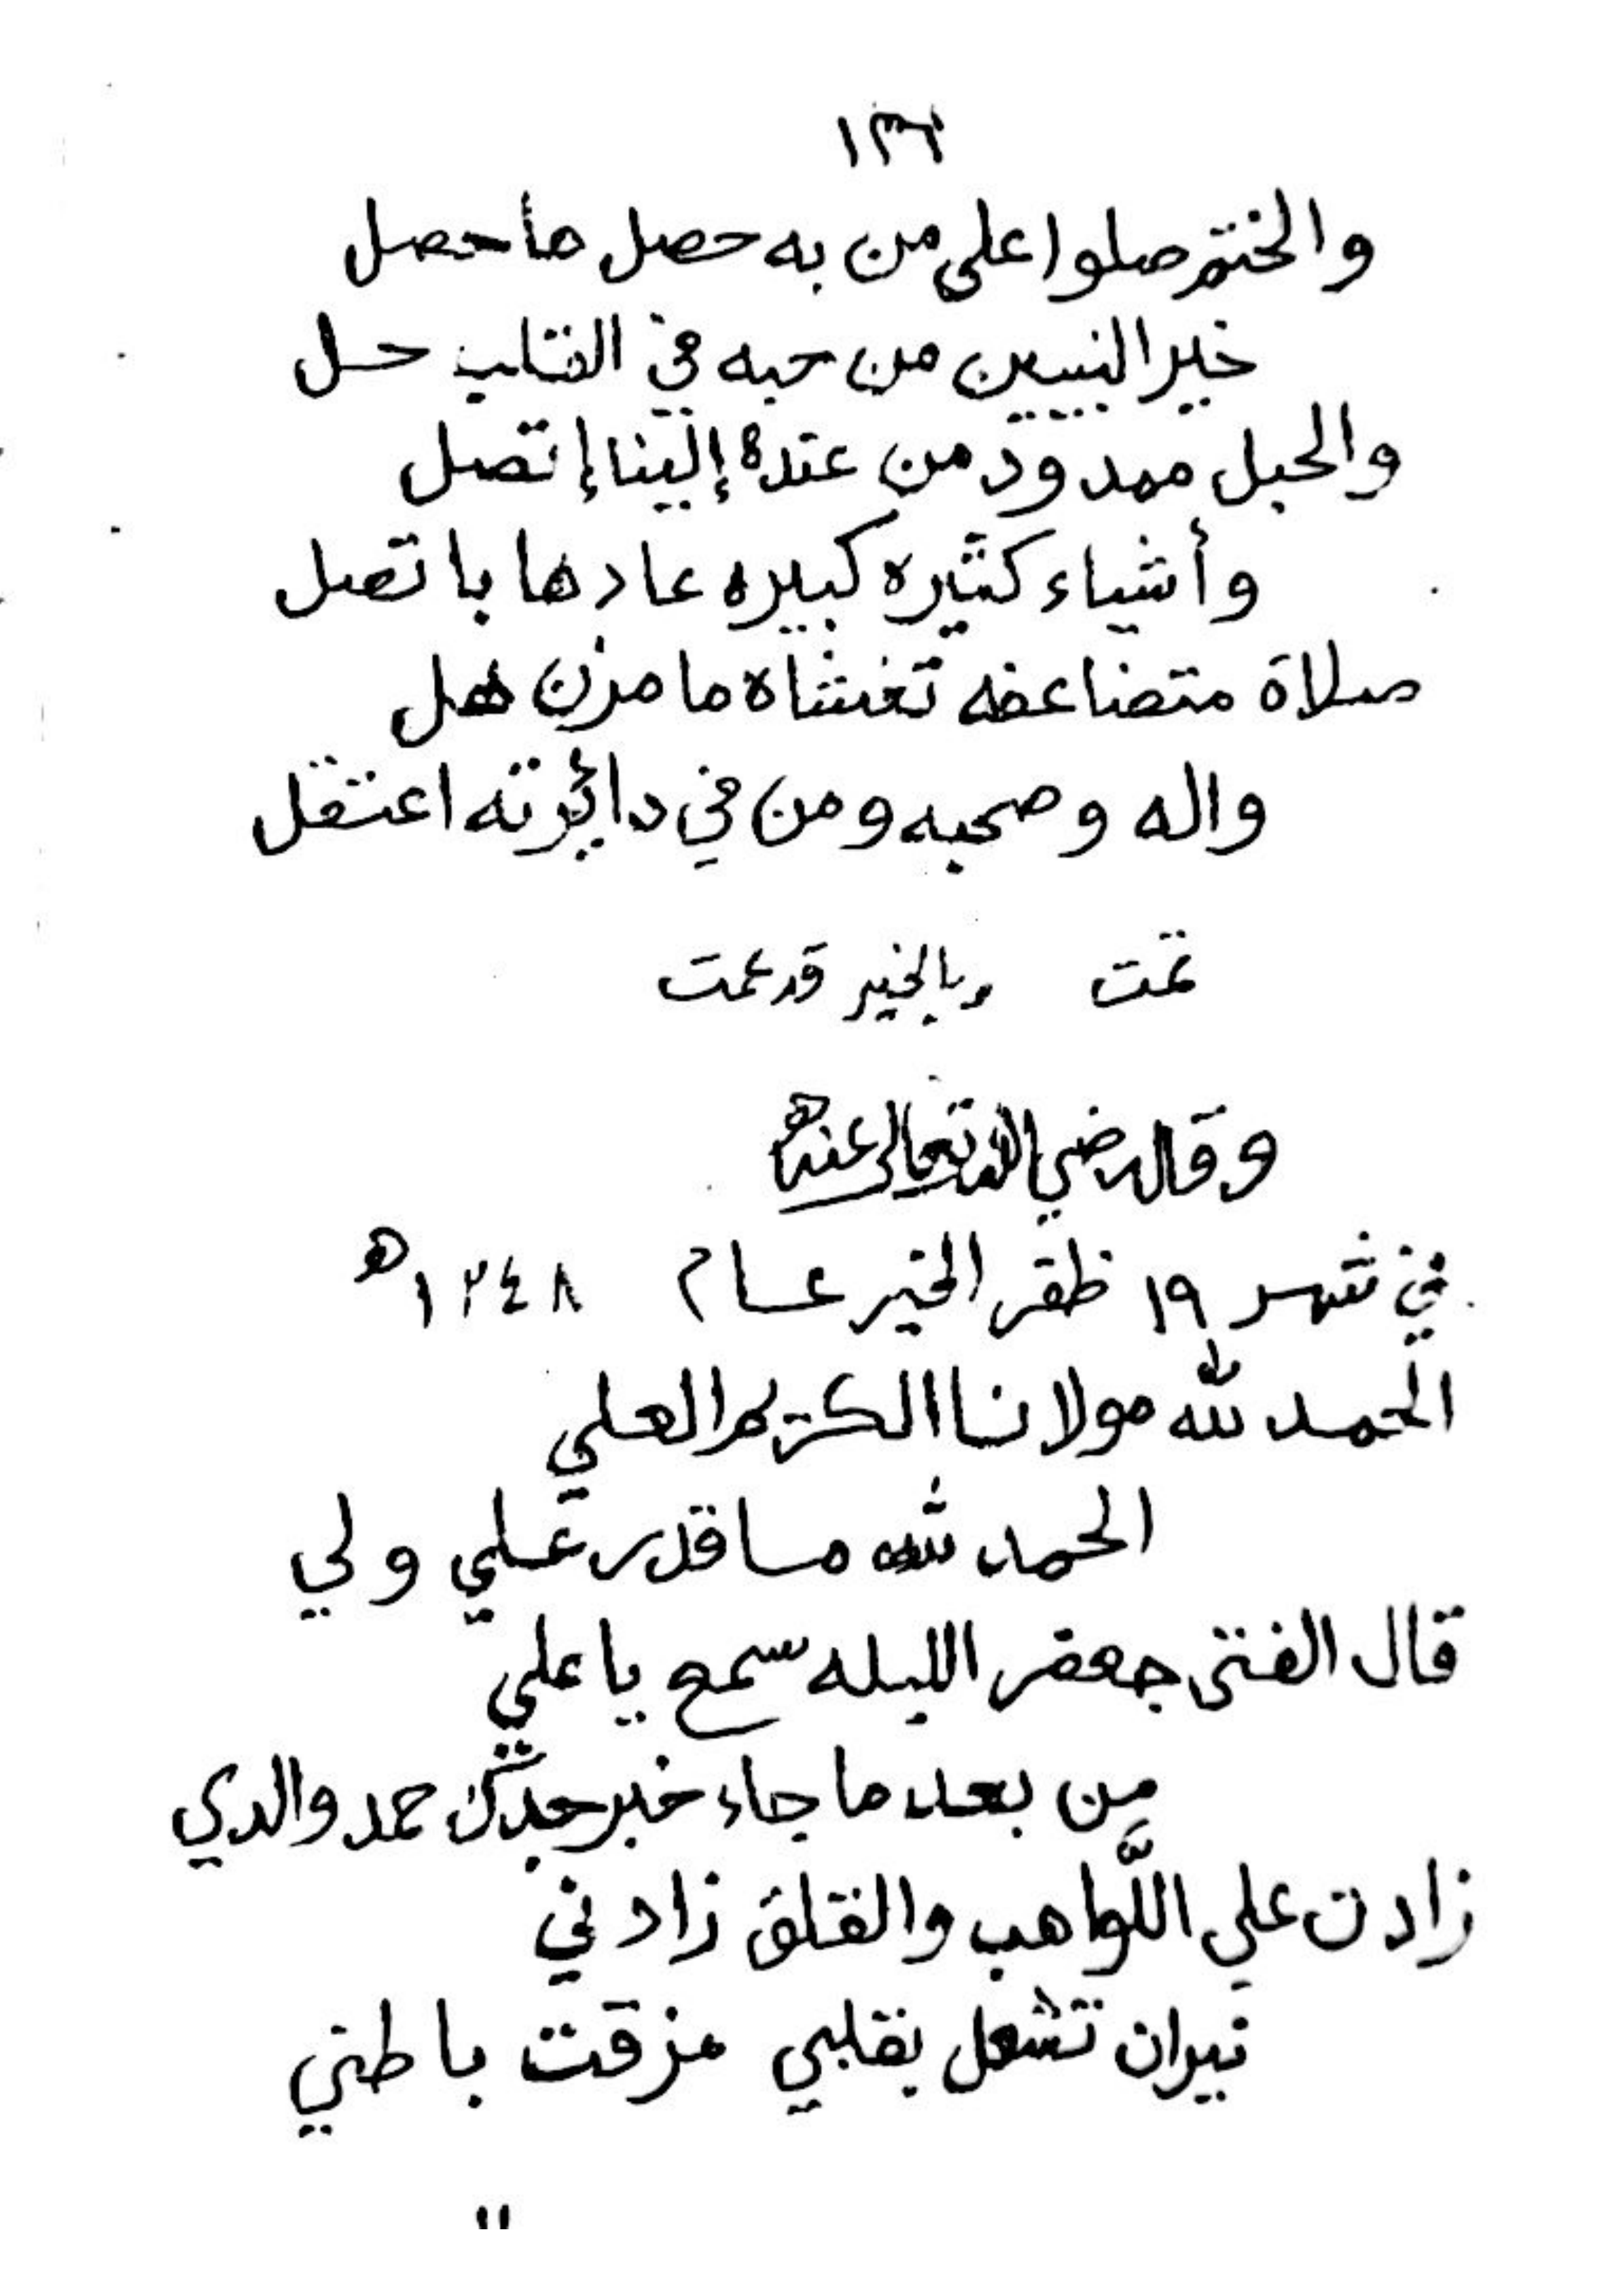 ١٣٦
والختم صلوا على من به حصل ما حصل
خير النبيين من حبه في القلب حل
والحبل ممدود من عنده إلينا إتصل
وأشياء كثيره كبيره عادها با تصل
صلاة متضاعفه تغشاه ما مزن هل
واله وصحبه ومن في دائرته اعتقل
تمت وبالخير قد عمت
وقال رضي الله تعالى عنه
في شهر ١٩ ظفر الخير عام ١٣٤٨ ه
الحمد لله مولانا الكريم العلي
الحمد لله ما قدر علي ولي
قال الفتى جعفر الليله سمع يا علي
من بعد ما جاء خبر جدك حمد والدي
زادت علي اللواهب والقلق زادني
نيران تشعل بقلبي مزقت باطني
"